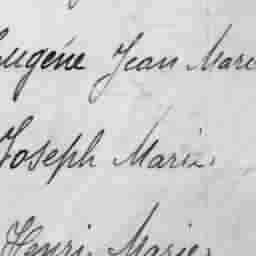 Eugéne Jean Marie
Joseph Marie
Henri Marie